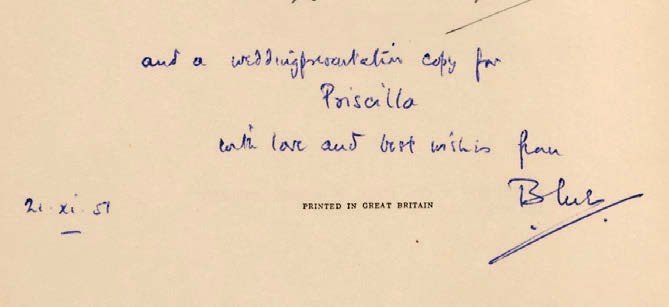 and a weddingpresentation copy for
Priscilla
with love and best wishes from
21·xi·51 PRINTED IN GREAT BRITAIN